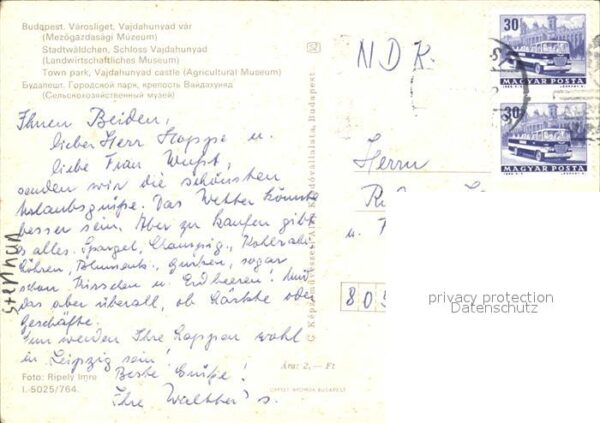 Budapest. Városliget, Vajdahunyad vár
(Mezőgazdasági Múzeum)
Stadtwäldchen, Schloss Vajdahunyad
(Landwirtschaftliches Museum)
Town park, Vajdahunyad castle (Agricultural Museum)
Будапешт. Городской парк, крепость Вайдахунид
(Сельскохозяйственный музей)
Ihnen Beiden,
lieber Herr Hoppe u.
liebe Frau
senden wir die schönsten
Urlaubsgrüße. Das Wetter könnte
besser sein. Aber zu kaufen gibt
es alles. Spargel, Champig., Kohlrabi
Möhren, Blumenk., Gurken, sogar
schon Kirschen u. Erdbeeren! Und
das aber überall, ob Märkte oder
Geschäfte.
Nun werden Ihre wohl
in Leipzig sein!
Beste Grüße!
Ihre Walther's.
Foto: Ripely Imre
I.-5025/764.
Képzőművészeti Alap Kiadóvállalata, Budapest
Ára: 2,— Ft
NDK
30
MAGYAR POSTA
30
MAGYAR POSTA
Herrn
u.
805
privacy protection
Datenschutz